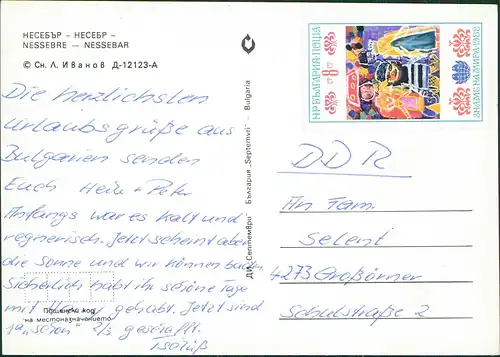 НЕСЕБЪР – НЕСЕБР –
NESSEBRE – NESSEBAR
© Сн. Л. Иванов Д-12123-А
Die herzlichsten
Urlaubsgrüße aus
Bulgarien senden
Euch Hein + Peter
Anfangs war es kalt und
regnerisch. Jetzt scheint aber
die Sonne und wir können baden.
Sicherlich habt ihr schöne Tage
mit gehabt. Jetzt sind
ja „schon“ 2/3 geschafft.
Tschüß
Пощенски код
на местоназначението
ДИ „Септември“ България „Septemvri“ – Bulgaria
НР БЪЛГАРИЯ·ПОЩА
8
DDR
An Fam.
Selent
4273 Großörner
Schulstraße 2